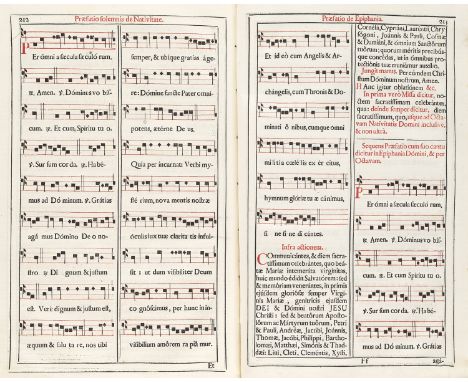 212 Præfatio solemnis de Nativitate.
PEr ómni a sæcula sæculó rum,
℟. Amen. ℣. Dóminus vo bis-
cum. ℟. Et cum Spíritu tu o
℣. Sur sum cor da. ℟. Habé-
mus ad Dómi num. ℣. Grátias
agá mus Dómino De o no-
stro ℟. Dignum & justum
est. Verè dignum & justum est,
æquum & salu ta re, nos tibi
semper, & ubique gratias á ge-
re: Dómine sancte Pater omni-
potens, ætérne De us,
Quia per incarnati Verbi my-
sté rium, nova mentis nostræ
óculis lux tuæ clarita tis infúl-
sit: ut dum visibíliter Deum
co gnóscimus, per hunc in in-
visibílium amórem ra piá mur.
Et
Præfatio de Epiphania. 213
Et id eò cum Angelis & Ar-
chángelis, cum Thronis & Do-
minati ó nibus, cumque omni
mi li ti a cælé stis ex ér citus,
hymnum glóriæ tu æ cánimus,
si ne fi ne di cén tes.
Infra actionem.
COmmunicántes, & diem sacra-
tíssimum celebrántes, quo beá-
tæ Maríæ intemeráta virgínitas,
huic mundo édidit Salvatórem: sed
& memóriam venerántes, in primis
ejúsdem gloriósæ semper Vírgi-
nis Maríæ, genitrícis ejúsdem
DEI & Dómini nostri JESU
Christi: sed & beatórum Apostoló-
rum ac Mártyrum tuórum, Petri
& Pauli, Andréæ, Jacóbi, Joánnis,
Thomæ, Jacóbi, Philíppi, Bartho-
lomæi, Matthæi, Simónis & Thad-
dæi: Lini, Cleti, Cleméntis, Xysti,
Cornélii, Cypriáni, Lauréntii, Chry-
sógoni, Joánnis & Pauli, Cosmæ
& Damiáni, & ómnium Sanctórum
tuórum; quorum méritis precibús-
que concédas, ut in ómnibus pro-
tectiónis tuæ muniámur auxílio.
Jungit manus. Per eúmdem Chri-
stum Dóminum nostrum, Amen.
HAnc ígitur oblatiónem &c.
In prima verò Missa dicitur, no-
ctem sacratíssimam celebrántes,
quæ deinde semper dicitur, diem
sacratíssimum, quo, usque ad Octa-
vam Nativitatis Domini inclusivè,
& non ultrà.
Sequens Præfatio cum suo cantu
dicitur in Epiphania Dómini, & per
Octavam.
PEr ómni a sæcula sæculó rum,
℟. Amen. ℣. Dóminus vo bis-
cum. ℟. Et cum Spíritu tu o.
℣. Sur sum cor da. ℟. Habé-
mus ad Dómi num. ℣. Grátias
Ff agá-